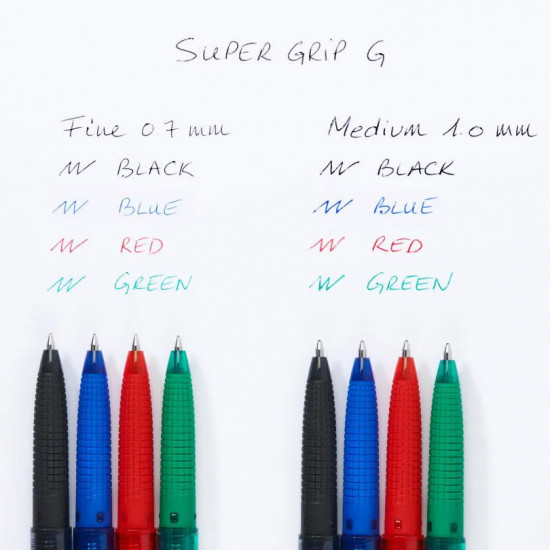 SUPER GRIP G
Fine 0.7 mm
BLACK
BLUE
RED
GREEN
Medium 1.0 mm
BLACK
BLUE
RED
GREEN